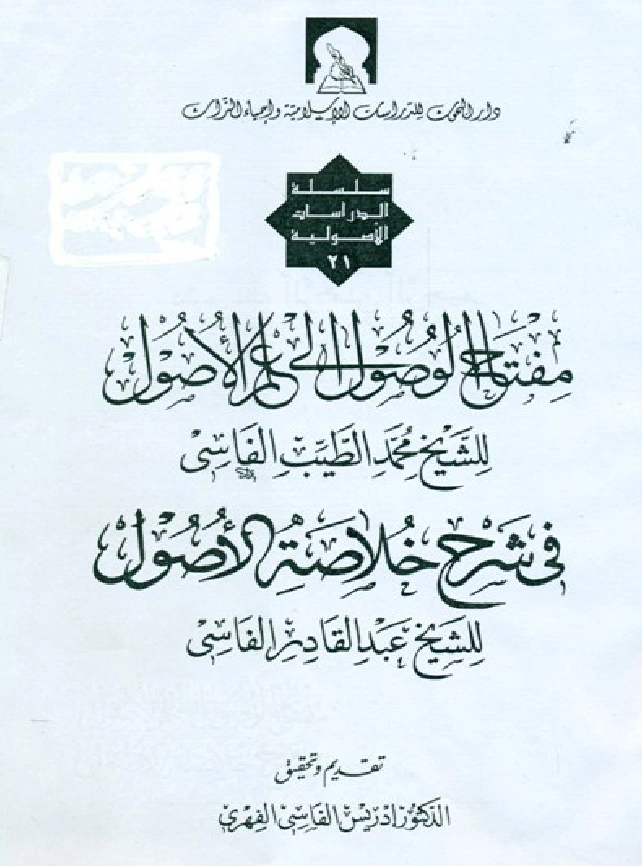 دار البحوث للدراسات الإسلامية وإحياء التراث
سلسلة
الدراسات
الأصولية
٢١
مفتاح الوصول إلى علم الأصول
للشيخ محمد الطيب الفاسي
في شرح خلاصة الأصول
للشيخ عبد القادر الفاسي
تقديم وتحقيق
الدكتور إدريس الفاسي الفهري